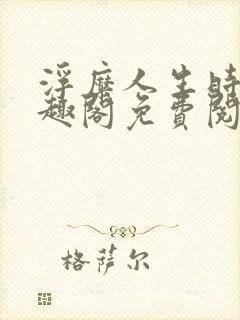 浮靡人生時
趣閣免費閱
格萨尔